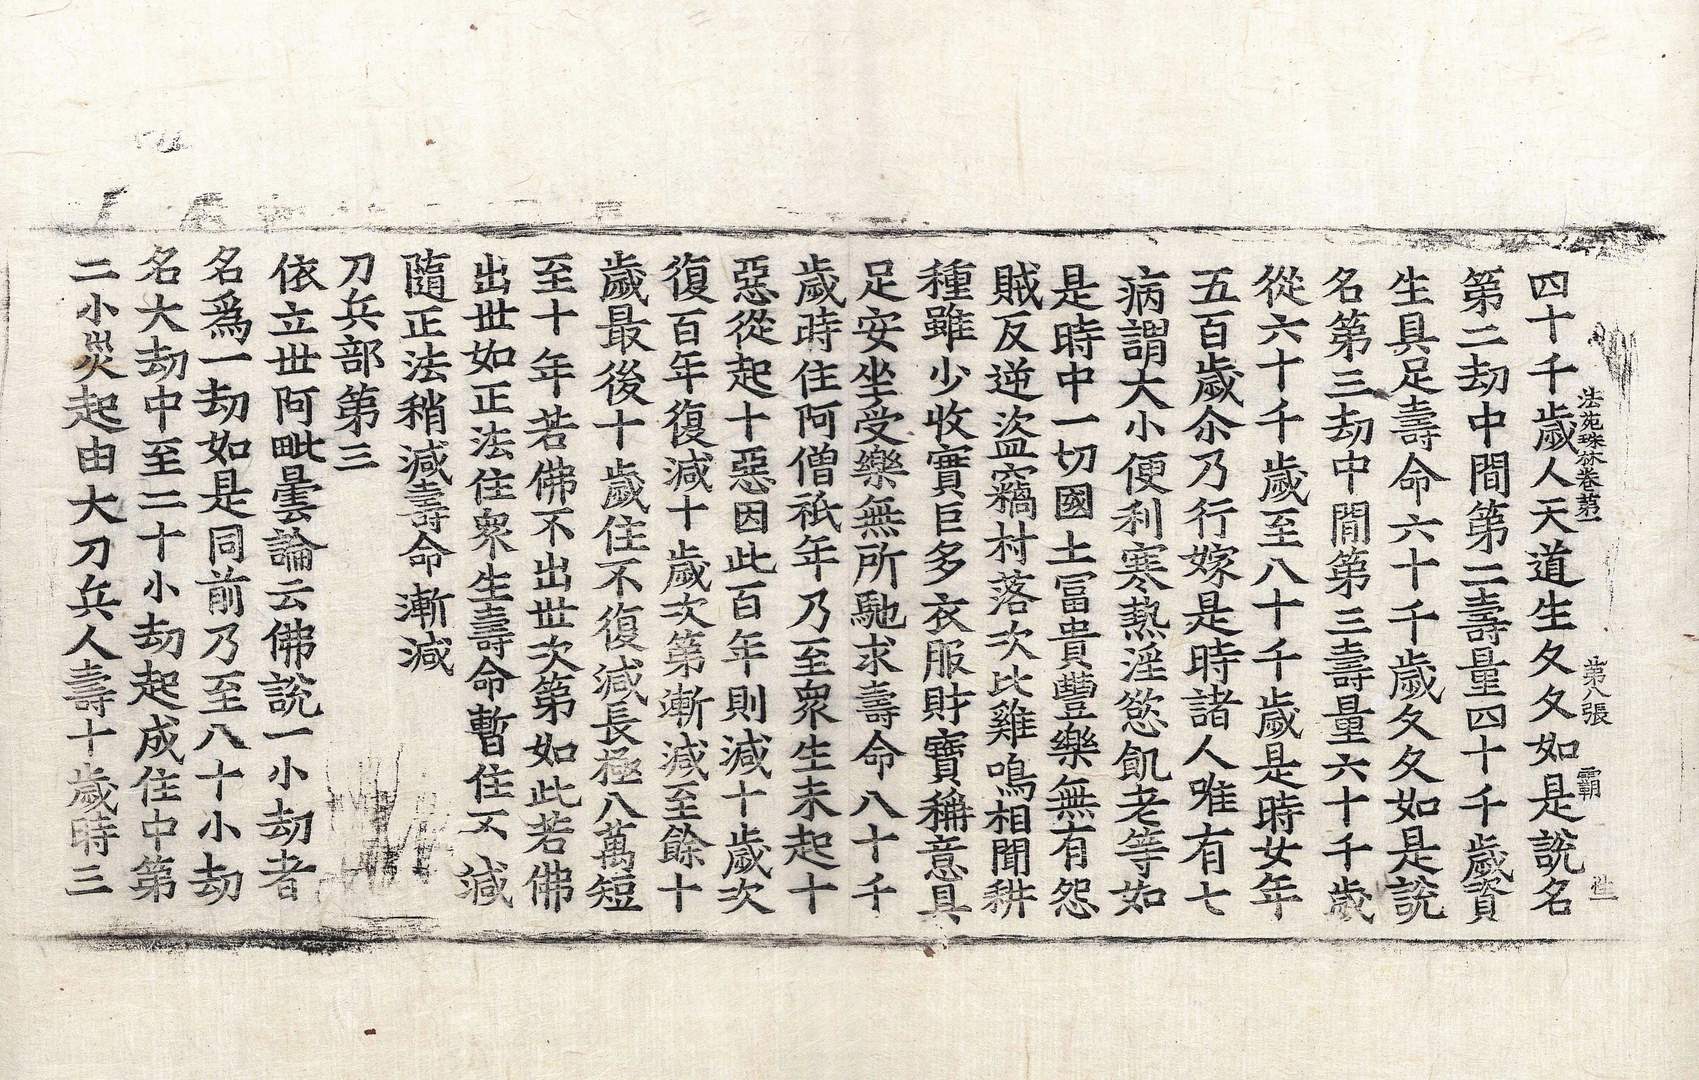 法苑珠林卷苐一 苐八張 覇
四十千歲人天道生夂夂如是說名
第二劫中間第二壽量四十千歲資
生具足壽命六十千歲夂夂如是說
名第三劫中間第三壽量六十千歲
從六十千歲至八十千歲是時女年
五百歲尒乃行嫁是時諸人唯有七
病謂大小便利寒熱淫慾飢老等如
是時中一切國土冨貴豐樂無有怨
賊反逆盜竊村落次比雞鳴相聞耕
種雖少收實巨多衣服財寶稱意具
足安坐受樂無所馳求壽命八十千
歲時住阿僧祇年乃至衆生未起十
惡從起十惡因此百年則減十歲次
復百年復減十歲次第漸減至餘十
歲最後十歲住不復減長極八萬短
至十年若佛不出世次第如此若佛
出世如正法住衆生壽命暫住不減
隨正法稍減壽命漸減
刀兵部第三
依立世阿毗曇論云佛說一小劫者
名爲一劫如是同前乃至八十小劫
名大劫中至二十小劫起成住中第
二小災起由大刀兵人壽十歲時三